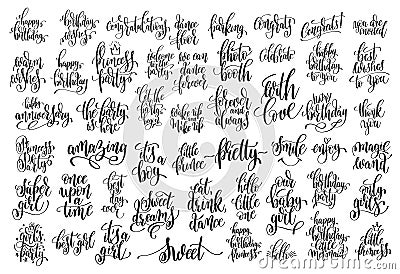 happy
birthday
wishes
congratulations
dance
floor
parking
congrats
congrats!
you are
invited
warm
wishes
happy
birthday
princess
party
welcome
to the
party
we can
dance
forever
photo
booth
celebrate
happy
birthday
to you
best
wishes
to you
happy
anniversary
the party
is here
forever
and
always
with
love
happy
birthday
thank
you
princess
party
amazing
it's a
boy
little
prince
pretty
smile
enjoy
magic
wand
super
girl
once
upon a
time
best
day
ever
sweet
dreams
eat,
drink,
dance
hello
little
one
our
baby
girl
birthday
party
only
girls
girls
party
best girl
it's a
girl
sweet
happy
birthday
princess
hello
happy
birthday
little mermaid
little
princess